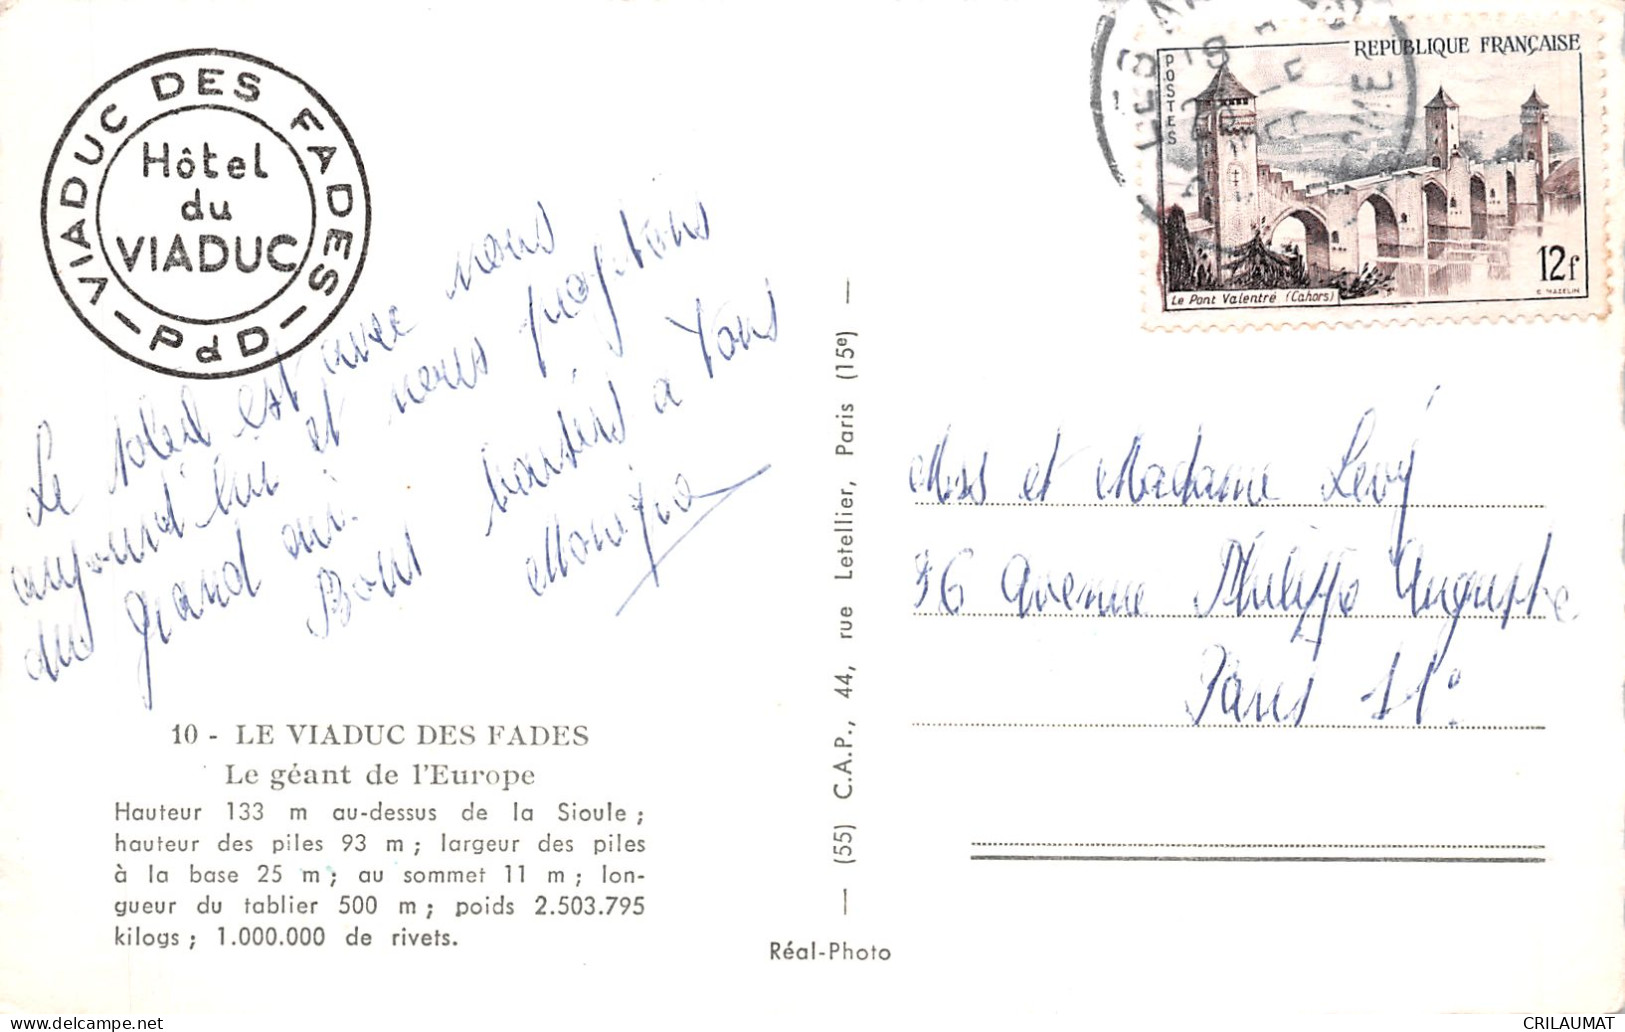 VIADUC DES FADES
Hôtel
du
VIADUC
— P d D —
REPUBLIQUE FRANÇAISE
POSTES
12f
Le Pont Valentré (Cahors)
C. MAZELIN
Le soleil est avec nous
aujourd'hui et nous profitons
du grand air.
Bons baisers a tous
Monique
Mrs et Madame Levy
96 Avenue Philippe Auguste
Paris 11e
10 - LE VIADUC DES FADES
Le géant de l'Europe
Hauteur 133 m au-dessus de la Sioule ;
hauteur des piles 93 m ; largeur des piles
à la base 25 m ; au sommet 11 m ; lon-
gueur du tablier 500 m ; poids 2.503.795
kilogs ; 1.000.000 de rivets.
— (55) C.A.P., 44, rue Letellier, Paris (15e) —
Réal-Photo
CRILAUMAT